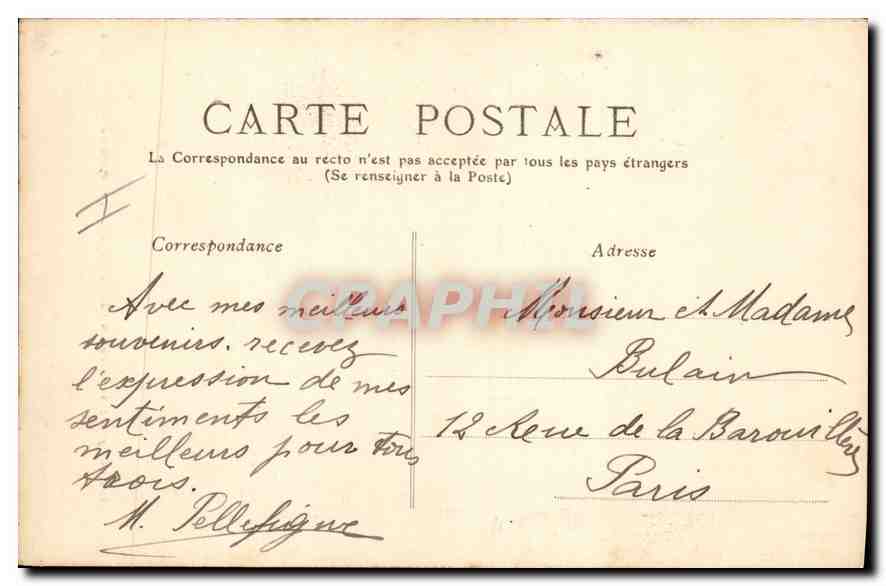 CARTE POSTALE
La Correspondance au recto n'est pas acceptée par tous les pays étrangers
(Se renseigner à la Poste)
Correspondance
Avec mes meilleurs
souvenirs. recevez
l'expression de mes
sentiments les
meilleurs pour tous
trois.
M. Pellefigue
Adresse
Monsieur et Madame
Bulair
12 Rue de la Barouillère
Paris
CPAPHIL